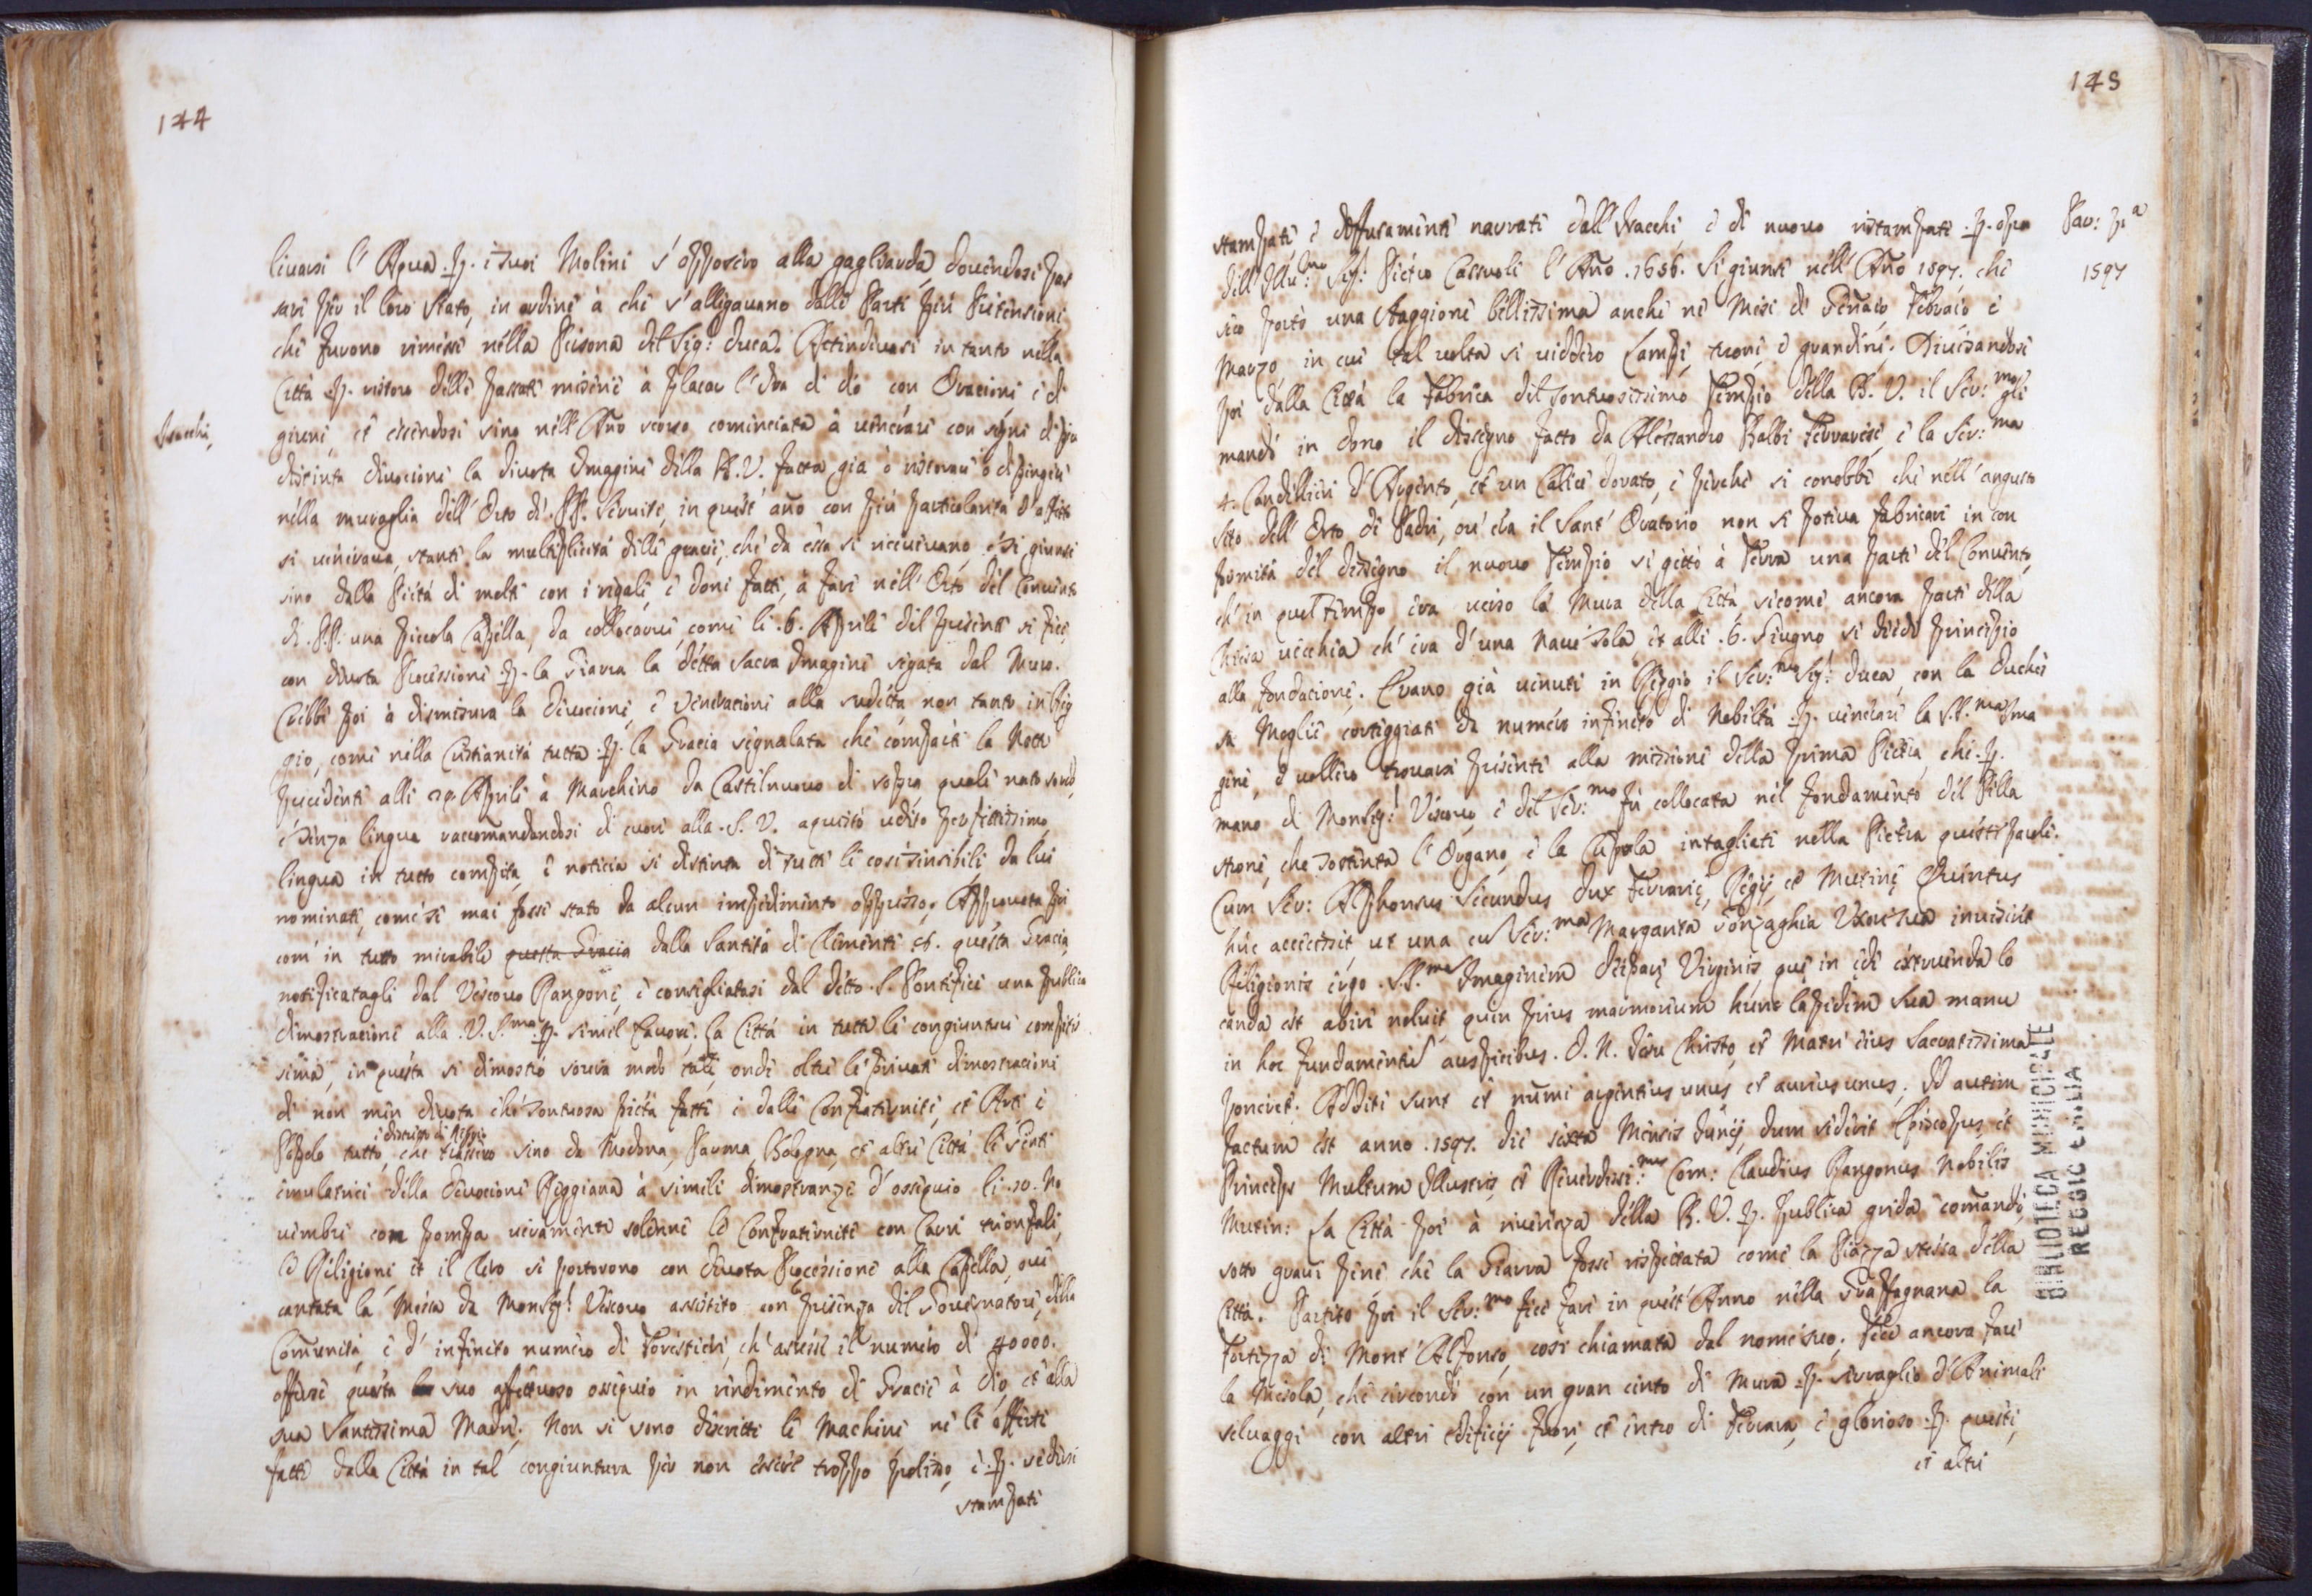 144
livarsi l'Aqua .p. i suoi Molini s'opposero alla gagliarda, dovendosi pas
sare per il loro Stato, in ordine à che s'allegavano dalle Parti più Pretensioni
che furono rimesse nella Persona del Sig: Duca. Attendevasi in tanto nella
Città .p. ristoro delle passate miserie à placar l'Ira di Dio con Orationi è di
Isacchi,
giuni, et essendosi sino nell'Año scorso cominciata à venerare con segni di più
distinta divotione la divota Imagine della B. V. fatta già ò ristorare ò dipingere
nella muraglia dell'Orto de' PP. Serviti, in quest'año con più particolarità d'affetto
si venerava, stante la multiplicità delle gracie, che da essa si ricevevano, è si giunse
sino dalla Pietà di molti con i regali, è doni fatti, à fare nell'Orto del Convento
di PP. una piccola Capella, da collocarvi, come li .6. Aprile del presente si fece
con divota Processione .p. la Giarra la detta Sacra Imagine segata dal Muro.
Crebbe poi à dismisura la divocione, è Veneratione alla sudetta non tanto in Reg
gio, come nella Cristianità tutta .p. la Gracia segnalata che compartì la Notte
precedente alli 29. Aprile à Marchino da Castelnuovo di sopra quale nato sordo,
è senza lingua raccomandandosi di cuore alla .S. V. aquistò udito perfettissimo,
lingua in tutto compita, è noticia si distinta di tutte le cose sensibili da lui
nominate, come se mai fosse stato da alcun impedimento oppresso. Approvata poi
com' in tutto mirabile questa Gracia dalla Santità di Clemente 8.º questa Gracia,
notificatagli dal Vescovo Rangone, è consigliatasi dal detto .S. Pontefice una publica
dimostracione alla .V. S.ma .p. simil favore. La Città in tutte le congiunture compitis
sima, in questa si dimostrò sovra modo tale, onde oltre le private dimostracioni
di non men divota che sontuosa pietà fatte e dalle Confraternite, et Arti è
Popolo tutto, che trassero sino da Modona, Parma, Bologna, et altre Città le Genti
emulatrici della divocione Reggiana à simili dimostranze d'ossequio li .20. No
vembre con pompa veramente solenne le Confraternite con Carri trionfali,
le Religioni, et il Clero si portorono con divota Processione alla Capella, ove
cantata la Messa da Monsig.r Vescovo assistito con presenza del Governatore, della
Comunità, è d'infinito numero di Forestieri, ch'ascese il numero di 40000.
offerse questa suo affettuoso ossequio in rendimento di Gracie à Dio, et alla
sua Santissima Madre. Non si sono descritte le Machine ne le offerte
fatte dalla Città in tal congiuntura per non essere troppo prolisso, è .p. vedersi
stampati
145
stampati è diffusamente narrati dall'Isacchi, è di nuovo ristampati .p. opra
dell'Illu:mo Sig: Pietro Cassoli l'Año .1656. Si giunse nell'Año 1597. che
1597
seco portò una staggione bellissima anche ne Mesi di Genaio, Febraio è
Marzo in cui tal volta si viddero lampi, tuoni, è grandini. Divisandosi
poi dalla Città la Fabrica del sontuosissimo Tempio della B. V. il Ser:mo gli
mandò in dono il dissegno fatto da Alessandro Balbi Ferrarese, è la Ser:ma
4. Candellieri d'Argento, et un Calice dorato, è perche si conobbe che nell'angusto
sito dell'Orto di Padri, ov'era il Sant'Oratorio non si poteva fabricare in con
formità del dissegno il nuovo Tempio si gettò à Terra una parte del Convento,
ch'in quel tempo era verso le Mura della Città, sicome ancora parte della
Chiesa vecchia ch'era d'una Nave sola et alli .6. Giugno si diede principio
alla fondacione. Erano già venuti in Reggio il Ser:mo Sig:r Duca, con la Duches
sa Moglie, corteggiati da numero infinito di Nobiltà .p. venerare la S.S.ma Ima
gine, è vollero trovarsi presenti alla missione della prima Pietra, che .p.
mano di Monsig:r Vescovo, è del Ser:mo fù collocata nel fondamento del Pilla
strone, che sostenta l'Organo, è la Cupola intagliati nella Pietra queste parole.
Cum Ser: Alphonsus Secundus Dux Ferrarię, Regij, et Mutinę Quintus
huc accessisset, ut una cu Ser:ma Margarita Gonzaghia Uxore sua inviseret
Religionis ergo .S.S.mam Imaginem Deiparę Virginis, quę in ędē extruenda lo
canda est abire noluit, quin prius marmoreum hunc lapidem sua manu
in hoc fundamento auspicibus. D. N. Iesu Christo, et Matre eius Sacratissima
poneret. Additi sunt et numi argenteus unus et aureus unus. Id autem
factum est anno .1597. die sexta Mensis Junij, dum sederet Episcopus, et
Princeps Multum Illustris, et Reverdiss:mus Com: Claudius Rangonus Nobilis
Mutin: La Città poi à riverenza della B. V. .p. publica grida comandò,
sotto gravi pene che la Giarra fosse rispettata come la Piazza stessa della
Città. Partito poi il Ser:mo fece fare in quest'Anno nella Graffagnana la
Fortezza di Mont'Alfonso, così chiamata dal nome suo. Fece ancora fare
la Mesola, che circondò con un gran cinto di Mura .p. serraglio d'Animali
selvaggi con altri edificij fuori, et entro di Ferrara, è glorioso .p. queste,
et altre
BIBLIOTECA MUNICIPALE
REGGIO EMILIA